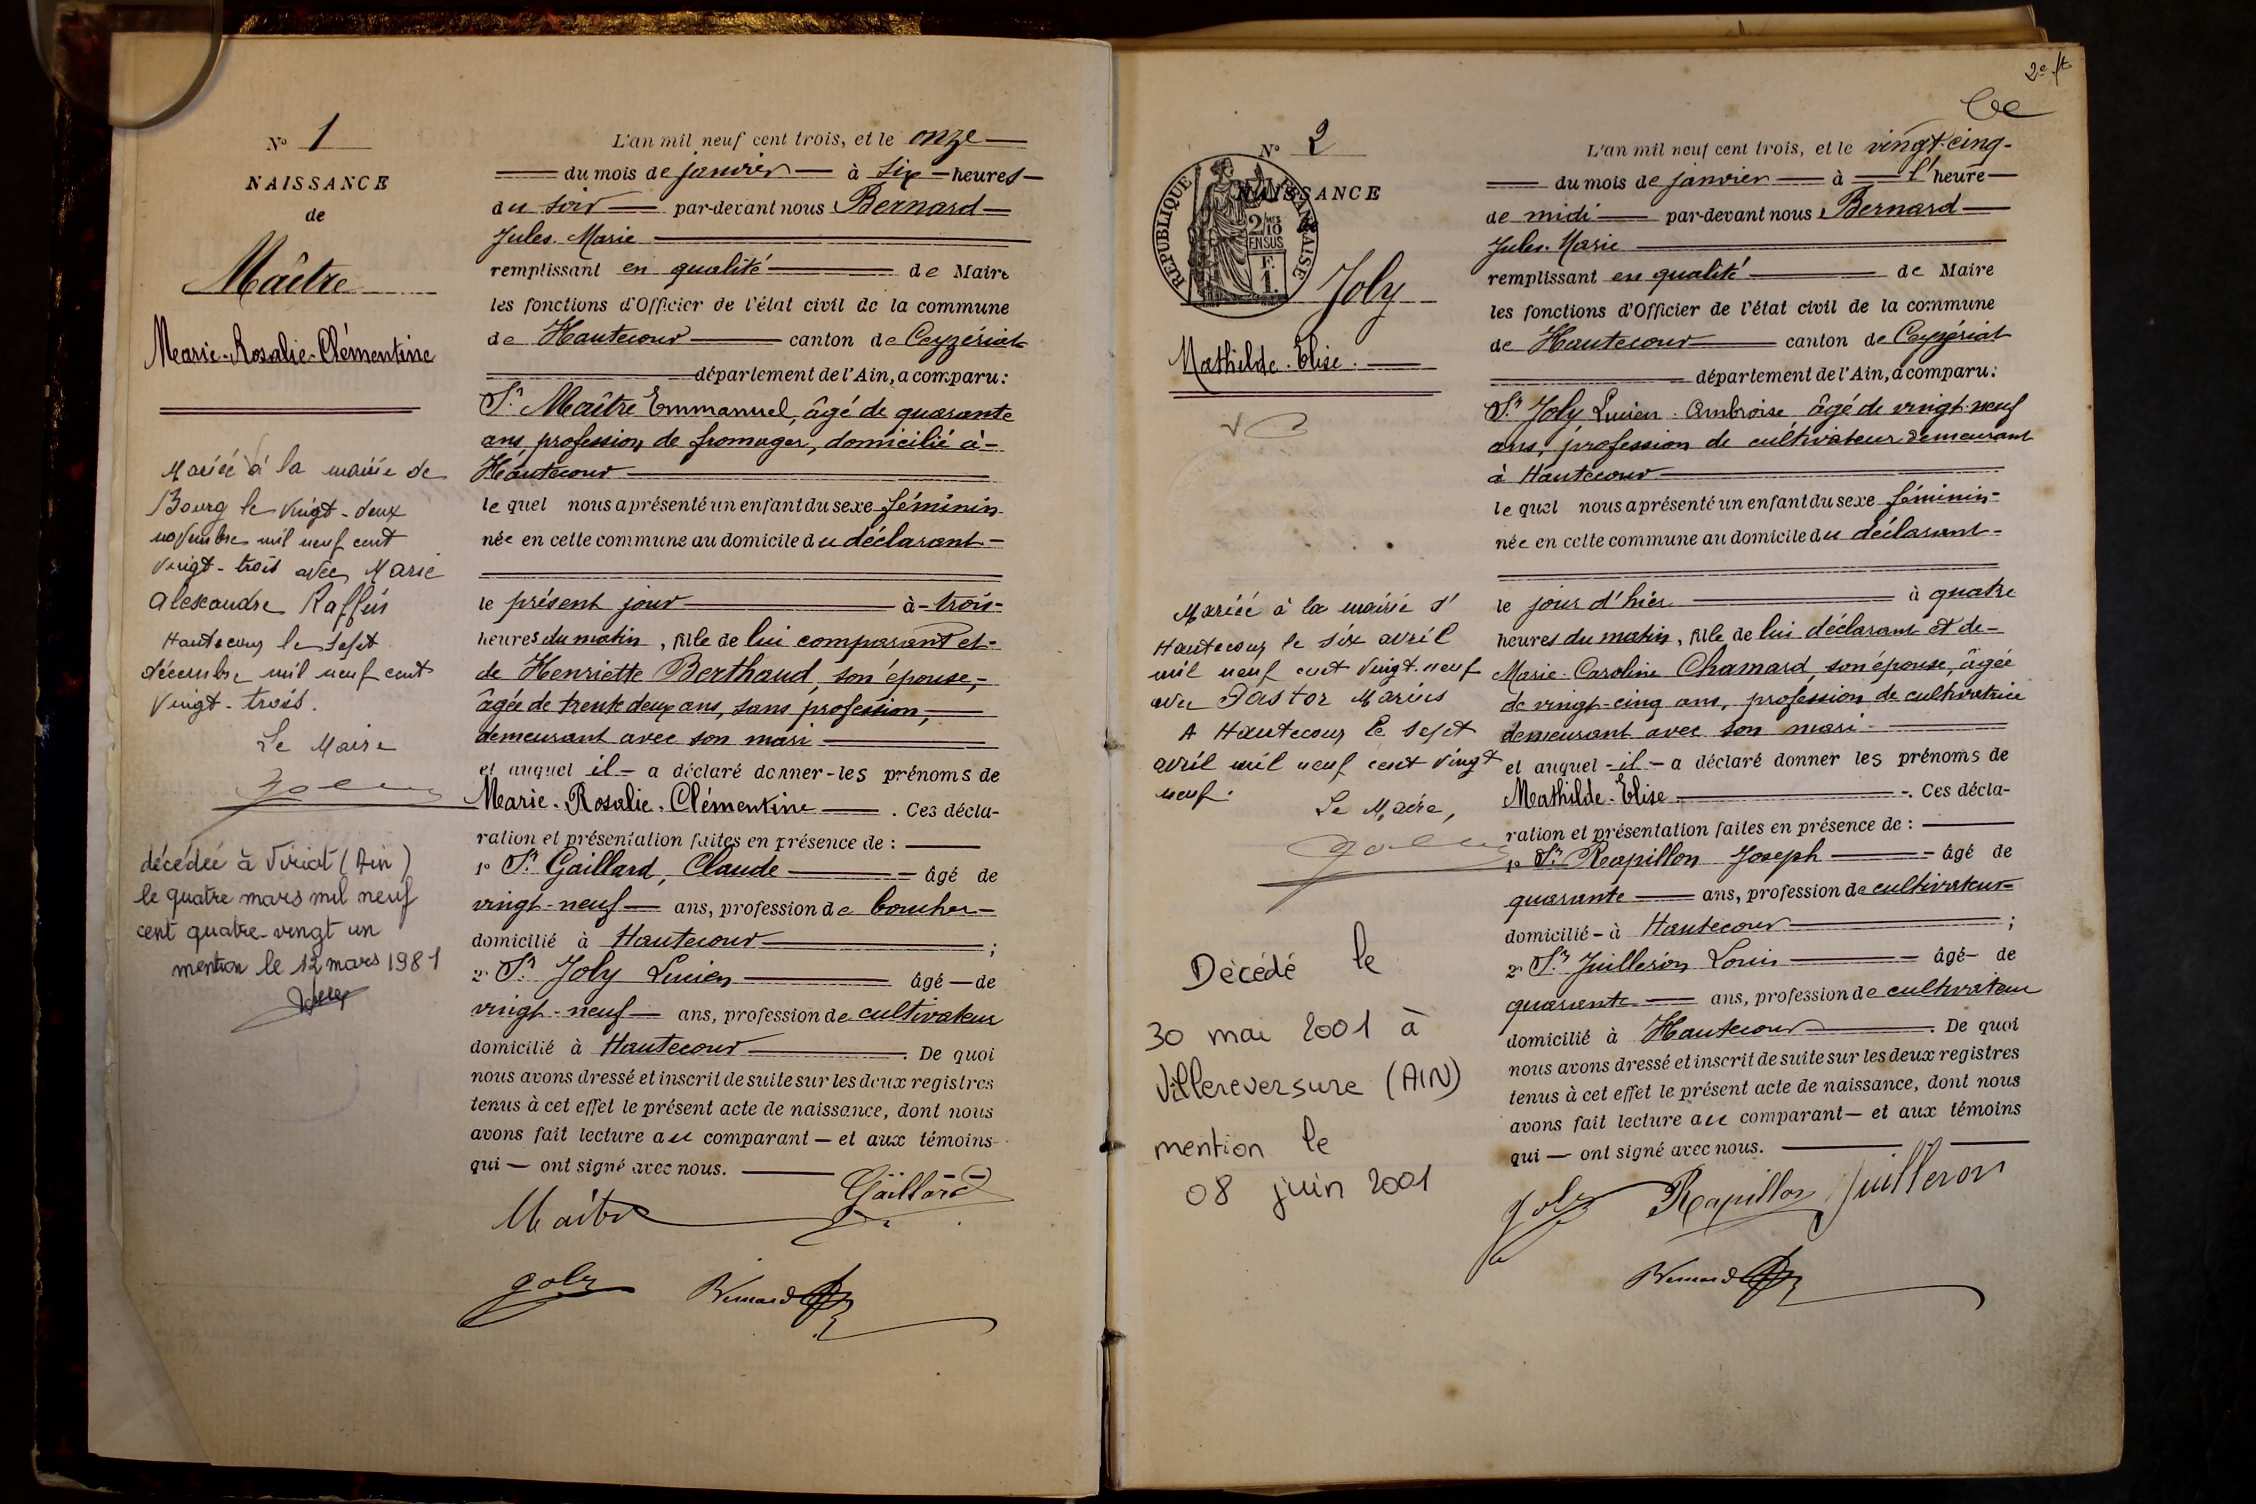 No 1
NAISSANCE
de
Maître
Marie-Rosalie-Clémentine
Mariée à la mairie de
Bourg le vingt-deux
novembre mil neuf cent
vingt-trois avec Marie
Alexandre Raffin
Hautecour le sept
décembre mil neuf cent
vingt-trois.
Le Maire
Joly
décédée à Viriat (Ain)
le quatre mars mil neuf
cent quatre-vingt un
mention le 12 mars 1981
L'an mil neuf cent trois, et le onze
du mois de janvier à six heures
du soir par-devant nous Bernard
Jules Marie
remplissant en qualité de Maire
les fonctions d'Officier de l'état civil de la commune
de Hautecour canton de Ceyzériat
département de l'Ain, a comparu :
Sr Maître Emmanuel, âgé de quarante
ans, profession de fromager, domicilié à
Hautecour
le quel nous a présenté un enfant du sexe féminin
née en cette commune au domicile du déclarant
le présent jour à trois
heures du matin, fille de lui comparant et
de Henriette Berthaud, son épouse,
âgée de trente deux ans, sans profession,
demeurant avec son mari
et auquel il a déclaré donner les prénoms de
Marie-Rosalie-Clémentine. Ces décla-
ration et présentation faites en présence de :
1o Sr Gaillard, Claude âgé de
vingt-neuf ans, profession de boucher
domicilié à Hautecour ;
2o Sr Joly Lucien âgé de
vingt-neuf ans, profession de cultivateur
domicilié à Hautecour. De quoi
nous avons dressé et inscrit de suite sur les deux registres
tenus à cet effet le présent acte de naissance, dont nous
avons fait lecture au comparant et aux témoins
qui ont signé avec nous.
Maître Gaillard
Joly Bernard
2e ft
No 2
NAISSANCE
REPUBLIQUE FRANÇAISE
2/10
EN SUS
F.
1.
Joly
Mathilde-Elise
Mariée à la mairie d'
Hautecour le six avril
mil neuf cent vingt-neuf
avec Pastor Marius
A Hautecour le sept
avril mil neuf cent vingt
neuf.
Le Maire,
Joly
Décédé le
30 mai 2001 à
Villereversure (AIN)
mention le
08 juin 2001
L'an mil neuf cent trois, et le vingt-cinq
du mois de janvier à l'heure
de midi par-devant nous Bernard
Jules Marie
remplissant en qualité de Maire
les fonctions d'Officier de l'état civil de la commune
de Hautecour canton de Ceyzériat
département de l'Ain, a comparu :
Sr Joly Lucien Ambroise âgé de vingt-neuf
ans, profession de cultivateur demeurant
à Hautecour
le quel nous a présenté un enfant du sexe féminin
née en cette commune au domicile du déclarant
le jour d'hier à quatre
heures du matin, fille de lui déclarant et de
Marie-Caroline Chamard, son épouse, âgée
de vingt-cinq ans, profession de cultivatrice
demeurant avec son mari
et auquel il a déclaré donner les prénoms de
Mathilde-Elise. Ces décla-
ration et présentation faites en présence de :
1o Sr Rapillon Joseph âgé de
quarante ans, profession de cultivateur
domicilié à Hautecour ;
2o Sr Juilleron Louis âgé de
quarante ans, profession de cultivateur
domicilié à Hautecour. De quoi
nous avons dressé et inscrit de suite sur les deux registres
tenus à cet effet le présent acte de naissance, dont nous
avons fait lecture au comparant et aux témoins
qui ont signé avec nous.
Joly Rapillon Juilleron
Bernard